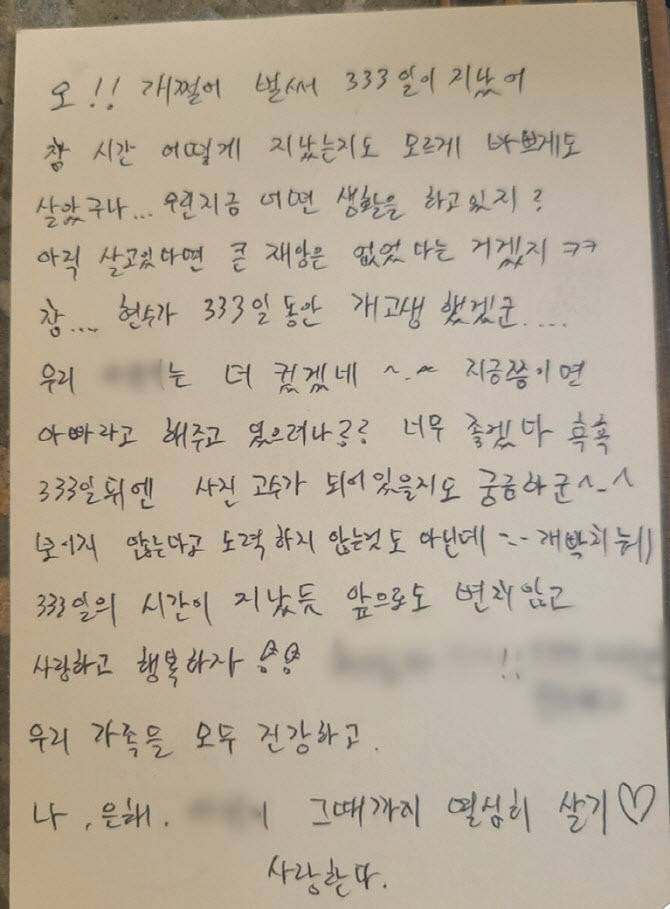 오!! 개쩔어 벌써 333일이 지났어
참 시간 어떻게 지났는지도 모르게 바쁘게도
살았구나... 우린지금 어떤 생활을 하고있지?
아직 살고있다면 큰 재앙은 없었다는 거겠지 ㅋㅋ
참.... 현수가 333일동안 개고생 했겠군.....
우리 는 더 컸겠네 ^.^ 지금쯤이면
아빠라고 해주고 있으려나?? 너무 좋겠다 흑흑
333일뒤엔 사진 고수가 되어있을지도 궁금하군^-^
보이지 않는다고 노력하지 않는것도 아닌데 --
333일의 시간이 지났듯 앞으로도 변함없고
사랑하고 행복하자 !!
우리 가족들 모두 건강하고.
나, 은해, 그때까지 열심히 살기♡
사랑한다.